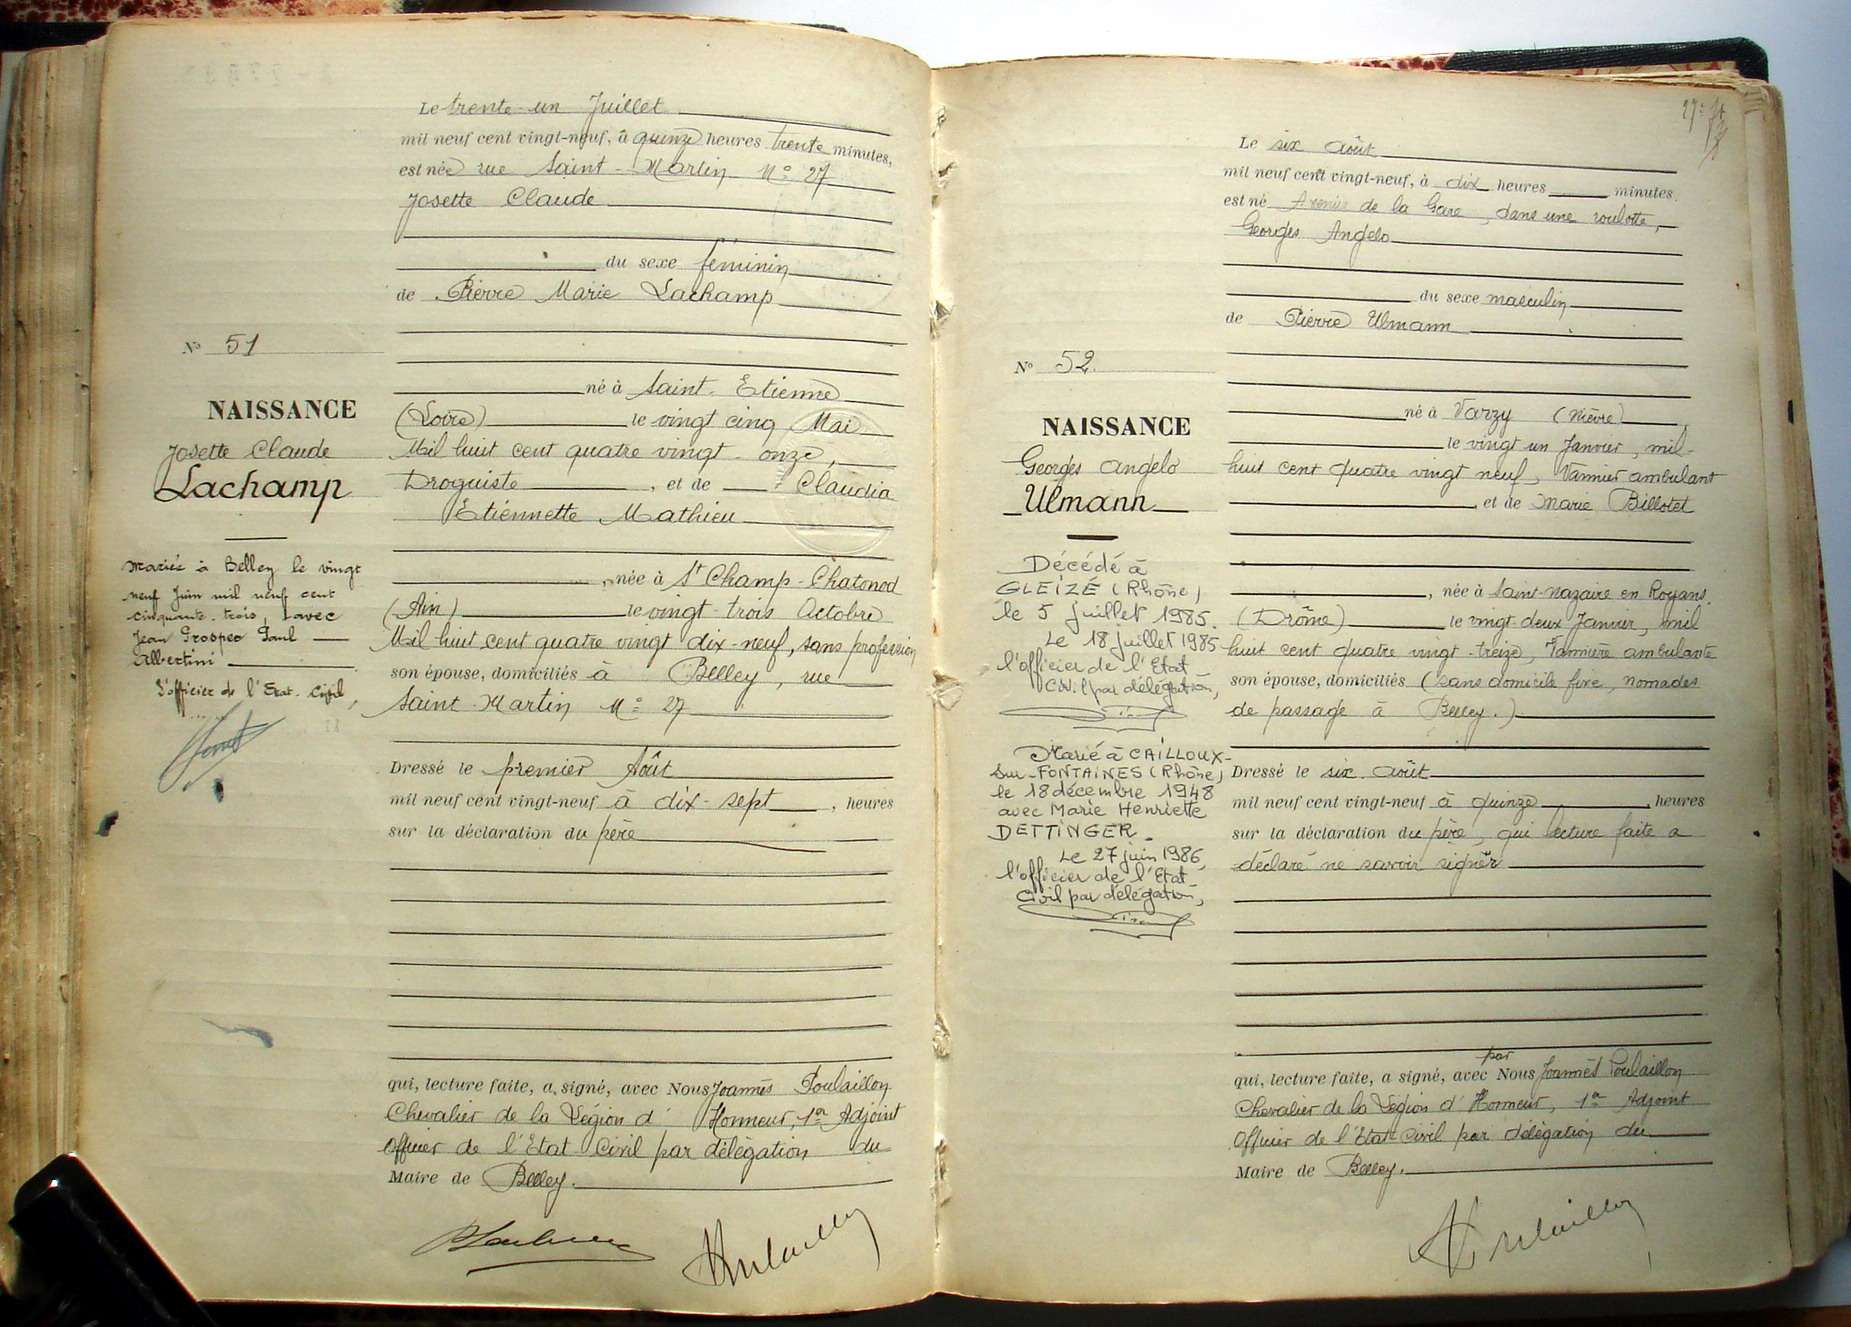 Le trente-un Juillet
mil neuf cent vingt-neuf, à quinze heures trente minutes,
est née rue Saint-Martin No 27
Josette Claude
du sexe féminin
de Pierre Marie Lachamp
No 51
NAISSANCE
Josette Claude
Lachamp
né à Saint-Etienne
(Loire) le vingt cinq Mai
Mil huit cent quatre vingt-onze,
Droguiste, et de Claudia
Etiennette Mathieu
Mariée à Belley le vingt
neuf Juin mil neuf cent
cinquante-trois, avec
Jean Prosper Paul
Albertini
L'officier de l'Etat-Civil,
, née à St Champ-Chatonod
(Ain) le vingt-trois Octobre
Mil huit cent quatre vingt dix-neuf, sans profession
son épouse, domiciliés à Belley, rue
Saint-Martin No 27
Dressé le premier Août
mil neuf cent vingt-neuf à dix-sept, heures
sur la déclaration du père
qui, lecture faite, a signé, avec Nous Joannès Poulaillon
Chevalier de la Légion d'Honneur, 1er Adjoint
Officier de l'Etat Civil par délégation du
Maire de Belley.
Le six août
mil neuf cent vingt-neuf, à dix heures minutes
est né Avenue de la Gare, dans une roulotte,
Georges Angelo
du sexe masculin
de Pierre Ulmann
No 52.
NAISSANCE
Georges Angelo
Ulmann
né à Varzy (Nièvre),
le vingt un Janvier, mil-
huit cent quatre vingt neuf, Vannier ambulant
et de Marie Billotet
Décédé à
GLEIZÉ (Rhône)
le 5 juillet 1985.
Le 18 juillet 1985
l'officier de l'Etat
Civil par délégation,
Marié à CAILLOUX-
sur-FONTAINES (Rhône)
le 18 décembre 1948
avec Marie Henriette
DETTINGER.
Le 27 juin 1986,
l'officier de l'Etat
Civil par délégation,
, née à Saint-Nazaire en Royans.
(Drôme) le vingt-deux Janvier, mil
huit cent quatre vingt-treize, Vannière ambulante
son épouse, domiciliés (sans domicile fixe, nomades
de passage à Belley.)
Dressé le six août
mil neuf cent vingt-neuf à quinze, heures
sur la déclaration du père, qui lecture faite a
déclaré ne savoir signer
par
qui, lecture faite, a signé, avec Nous Joannès Poulaillon
Chevalier de la Légion d'Honneur, 1er Adjoint
Officier de l'Etat-Civil par délégation du
Maire de Belley.